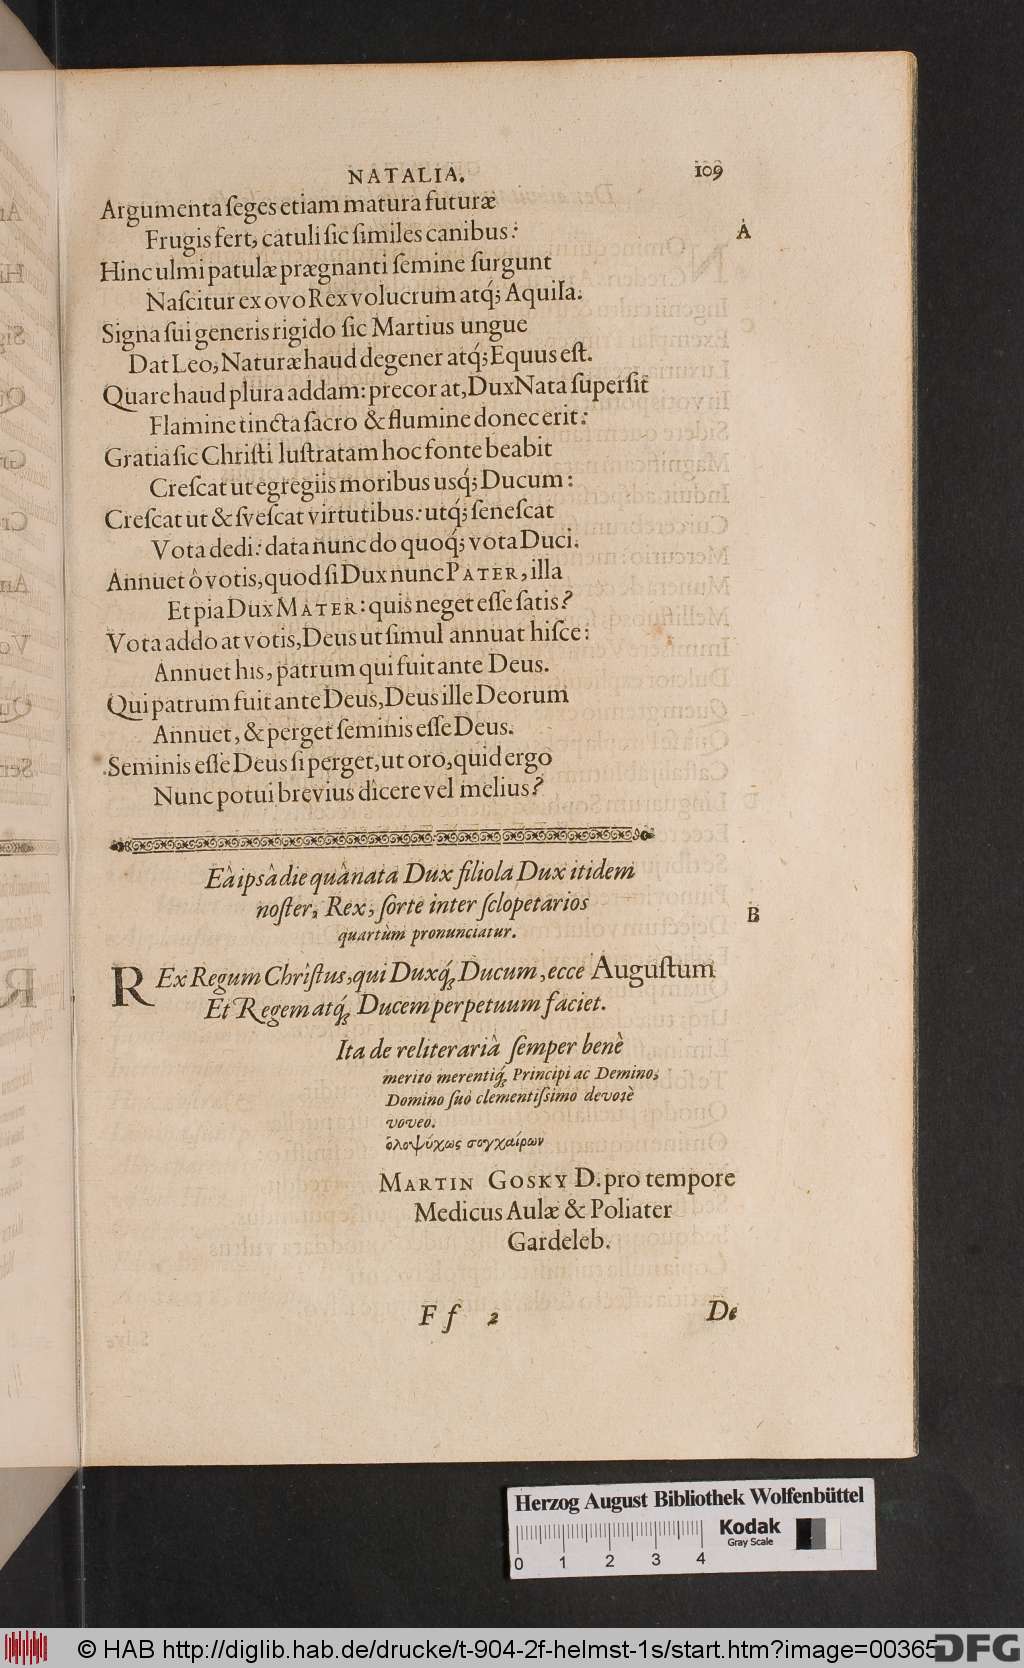 NATALIA. 109
Argumenta ſeges etiam matura futuræ
Frugis fert, catuli ſic ſimiles canibus: A
Hinc ulmi patulæ prægnanti ſemine ſurgunt
Naſcitur ex ovo Rex volucrum atq́; Aquila.
Signa ſui generis rigido ſic Martius ungue
Dat Leo, Naturæ haud degener atq́; Equus eſt.
Quare haud plura addam: precor at, Dux Nata ſuperſit
Flamine tincta ſacro & flumine donec erit:
Gratia ſic Chriſti luſtratam hoc fonte beabit
Creſcat ut egregiis moribus usq́; Ducum:
Creſcat ut & ſveſcat virtutibus: utq́; ſeneſcat
Vota dedi: data nunc do quoq́; vota Duci.
Annuet ô votis, quod ſi Dux nunc PATER, illa
Et pia Dux MATER: quis neget eſſe ſatis?
Vota addo at votis, Deus ut ſimul annuat hiſce:
Annuet his, patrum qui fuit ante Deus.
Qui patrum fuit ante Deus, Deus ille Deorum
Annuet, & perget ſeminis eſſe Deus.
Seminis eſſe Deus ſi perget, ut oro, quid ergo
Nunc potui brevius dicere vel melius?
Eâ ipsâ die quâ nata Dux filiola Dux itidem
noſter, Rex, ſorte inter ſclopetarios B
quartùm pronunciatur.
REx Regum Chriſtus, qui Duxq́; Ducum, ecce Auguſtum
Et Regem atq́; Ducem perpetuum faciet.
Ita de re literariâ ſemper benè
merito merentiq́; Principi ac Domino,
Domino ſuò clementiſsimo devotè
voveo.
ὁλοψύχως συγχαίρων
MARTIN GOSKY D. pro tempore
Medicus Aulæ & Poliater
Gardeleb.
Ff 2 De
Herzog August Bibliothek Wolfenbüttel
Kodak
Gray Scale
0 1 2 3 4
© HAB http://diglib.hab.de/drucke/t-904-2f-helmst-1s/start.htm?image=00365
DFG